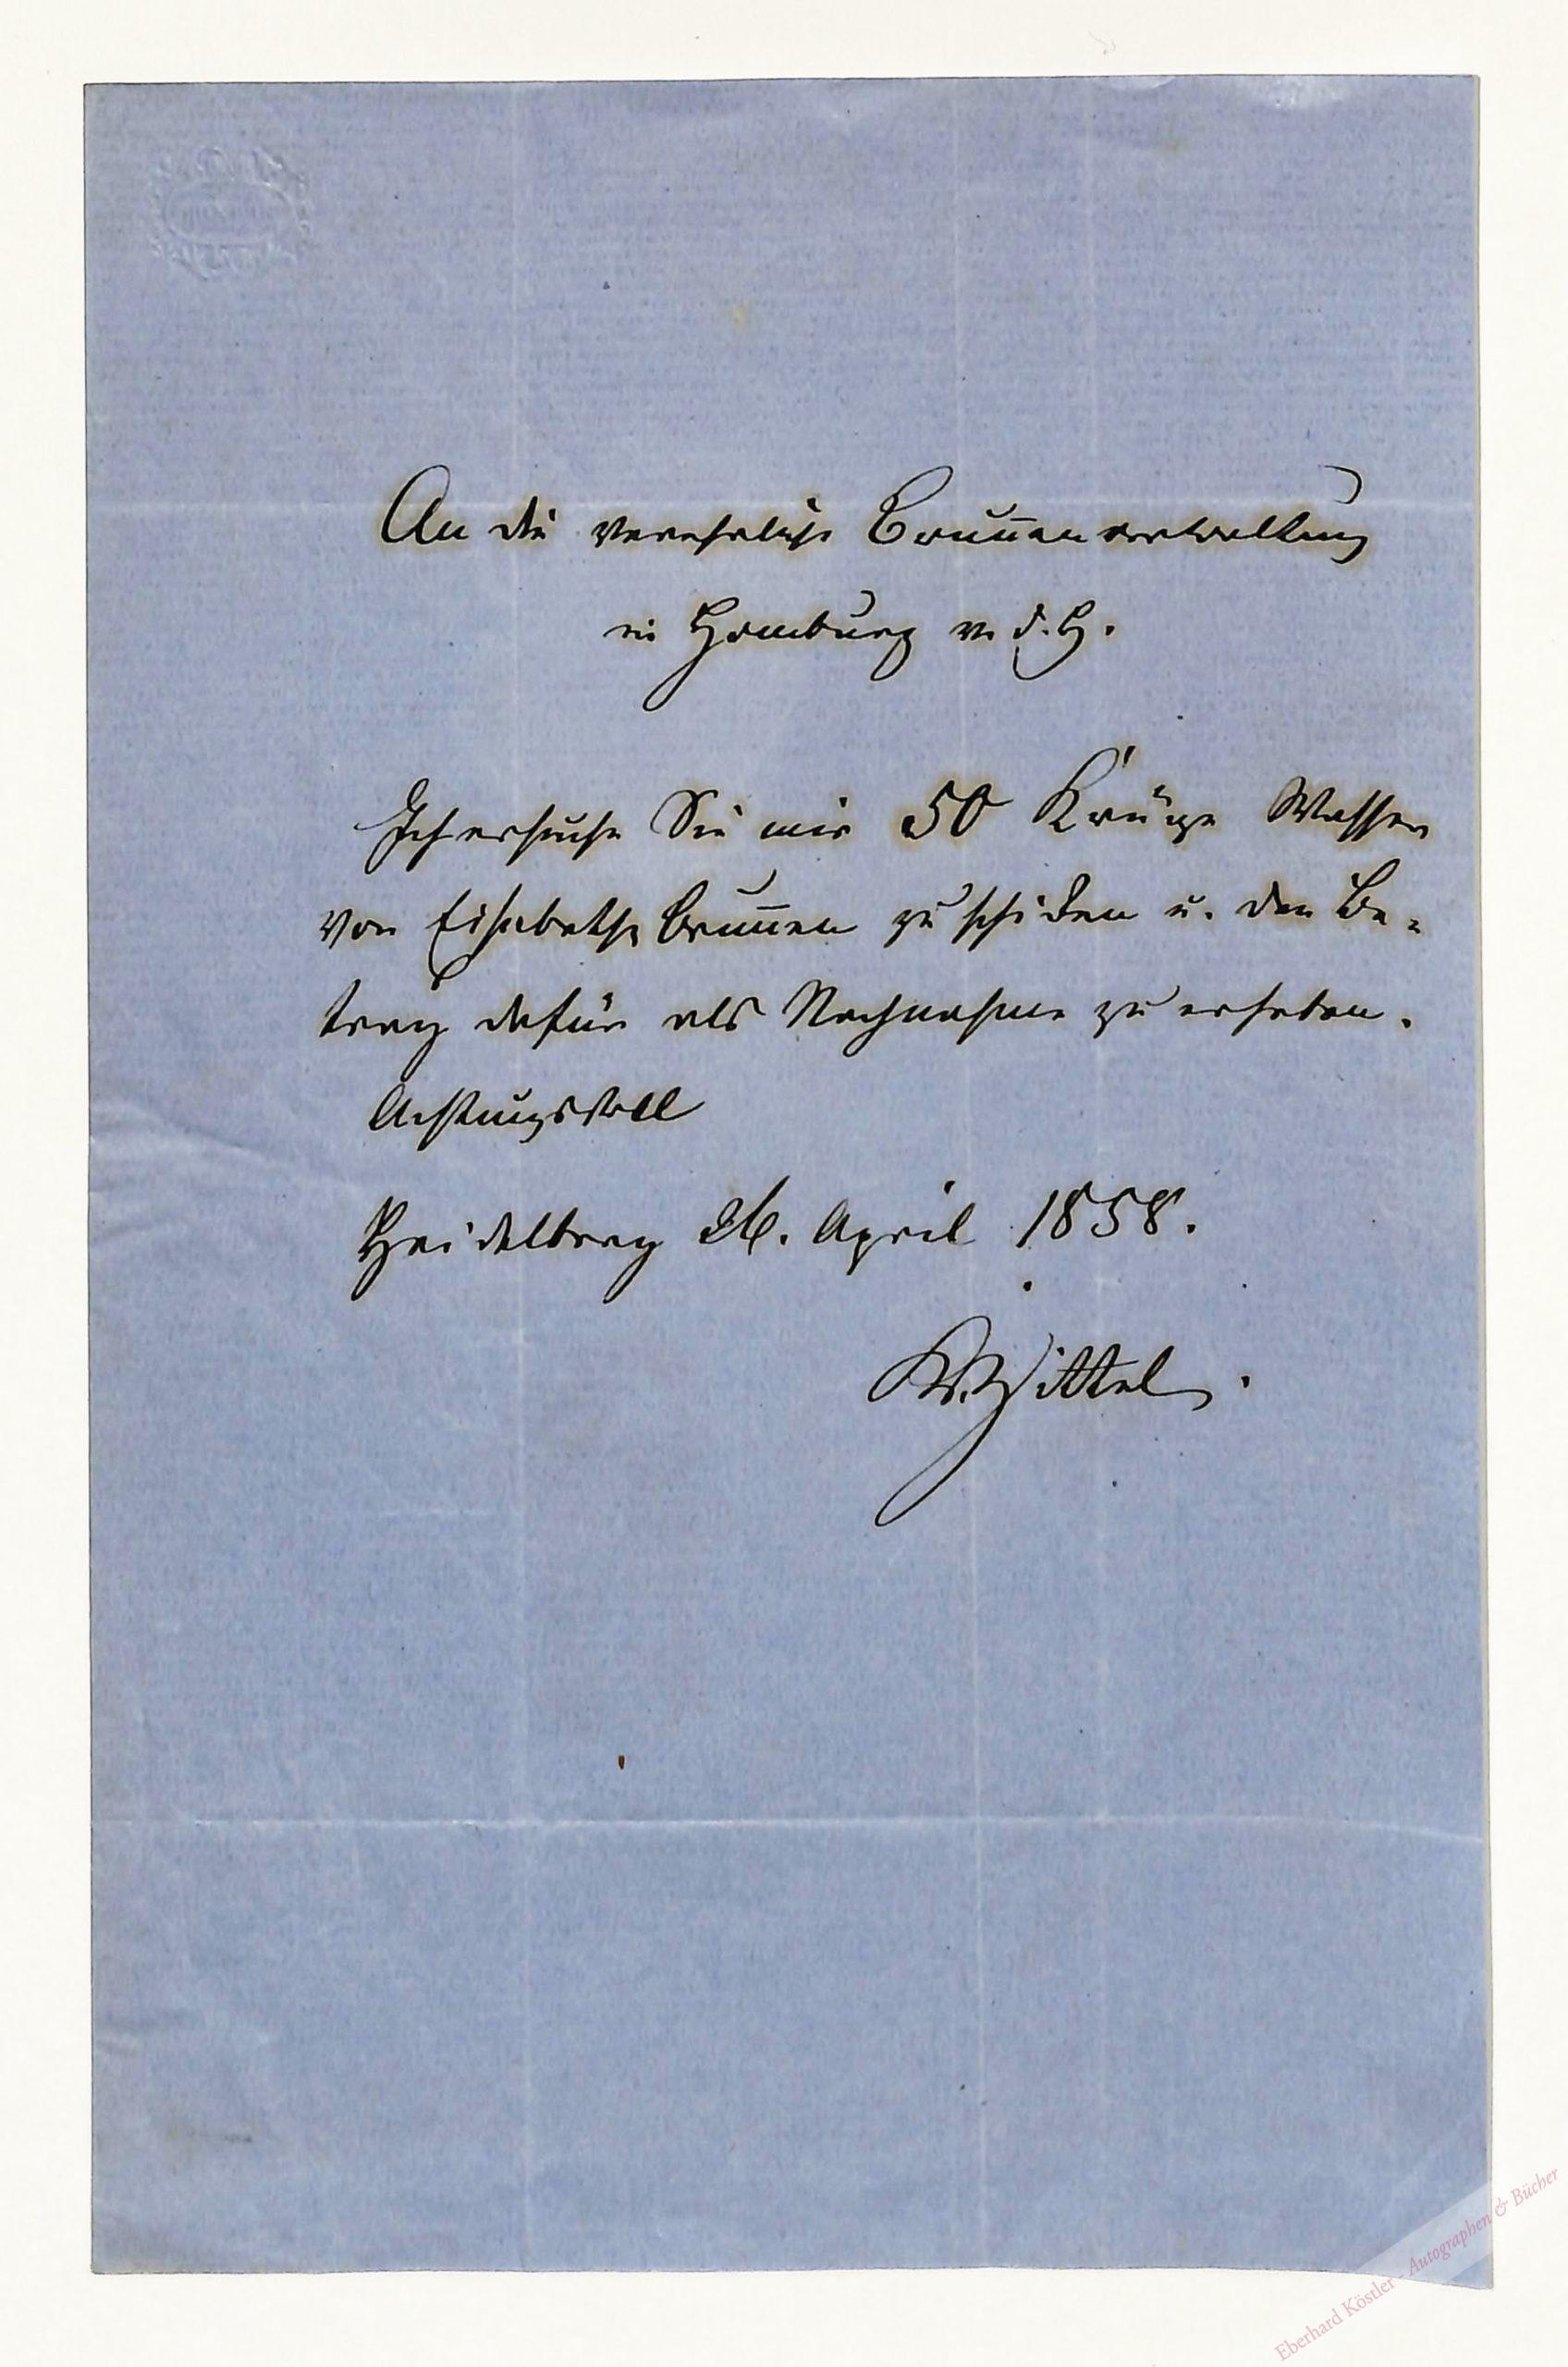 An die verehrliche Brunnenverwaltung
in Homburg v. d. H.
Ich ersuche Sie mir 50 Krüge Wasser
von Elisabethsbrunnen zu schicken u. den Be-
trag dafür als Nachnahme zu erheben.
Achtungsvoll
Heidelberg 26. April 1858.
Zittel.
Eberhard Köstler - Autographen & Bücher